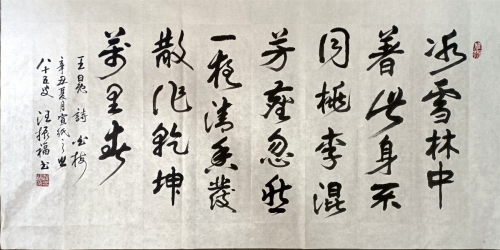 冰雪林中
著此身不
同桃李混
芳塵忽然
一夜清香發
散作乾坤
萬里春
王冕詩白梅
辛丑夏月宣紙之上
八十五叟汪振福书